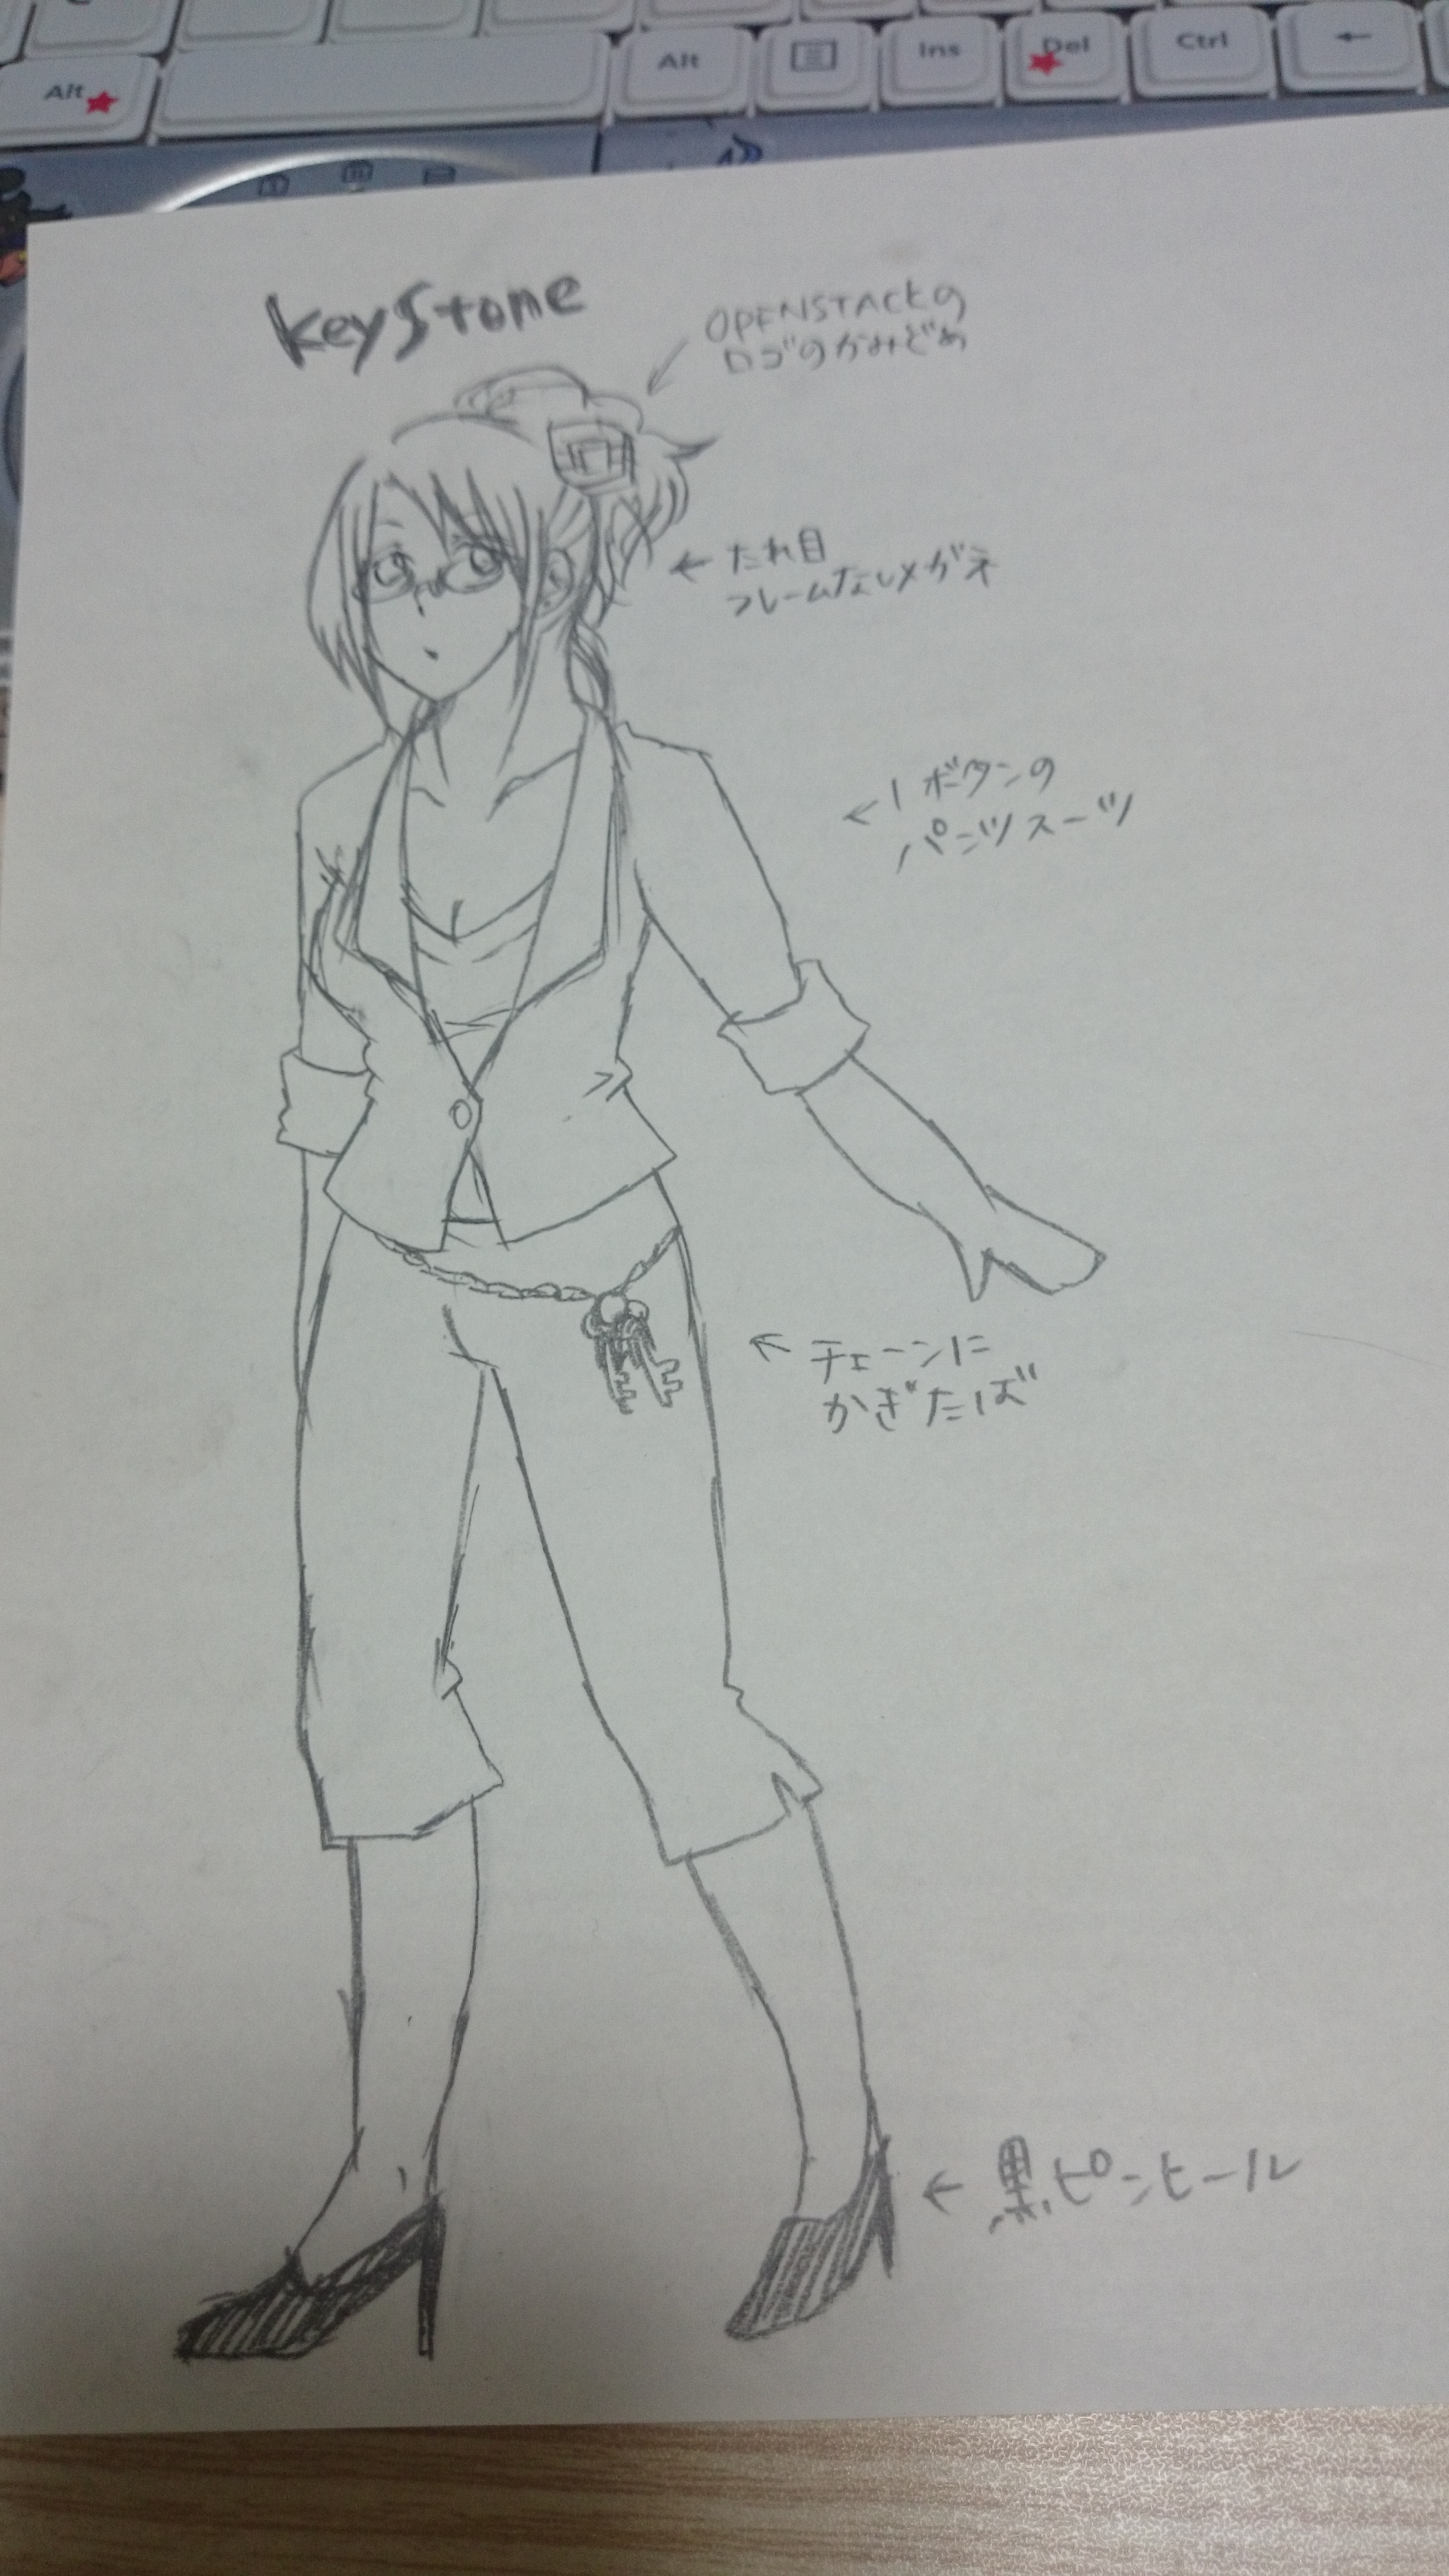 Alt
Alt
Ins
Del
Ctrl
←
keystone
OPENSTACKの
ロゴのかみどめ
← たれ目
フレームなしメガネ
← 1ボタンの
パンツスーツ
← チェーンに
かぎたば
← 黒ピンヒール